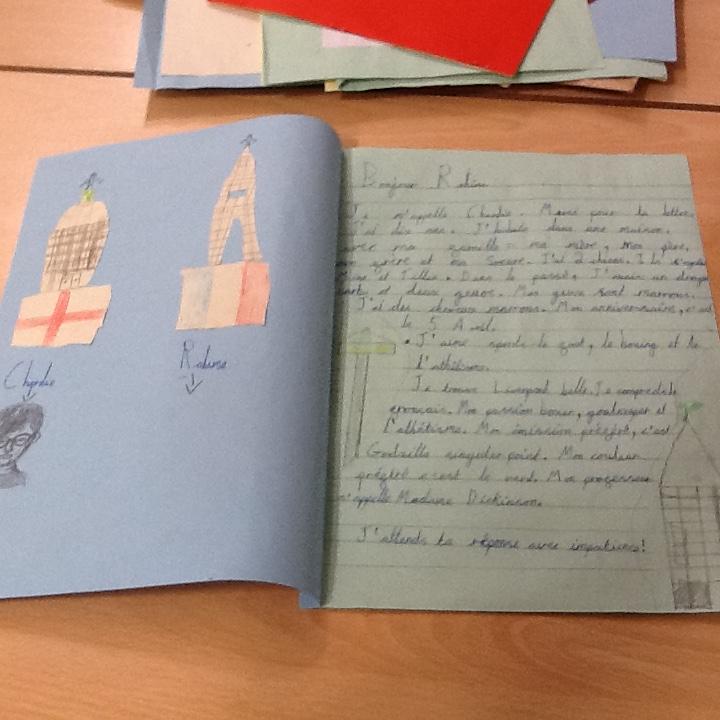 Charlie
Rahma
Bonjour
Je m'appelle Charlie. Merci pour ta lettre.
J'ai dix ans. J'habite dans une maison.
avec ma gamille = ma mère, mon père,
mon frère et ma Soeur. J'ai 2 chiens. I
et Tilla. Dans le passé, J'avais un dragon
barbu et deux geckos. Mes yeux sont marrons.
J'ai des cheveux marrons. Mon anniversaire, c'est
le 5 Avril.
• J'aime le goot, le boxing et le
l'athétisms.
Je trouve Liverpool belle. Je comprends le
français. Ma passion boxer, goalkeeper et
l'athétisme. Mon émission préféré, c'est
Godzilla singular point. Mon couleur
préféré c'est le vert. Mon progesseur
m'appelle Madame Dickinson.
J'attends ta réponse avec impatience!